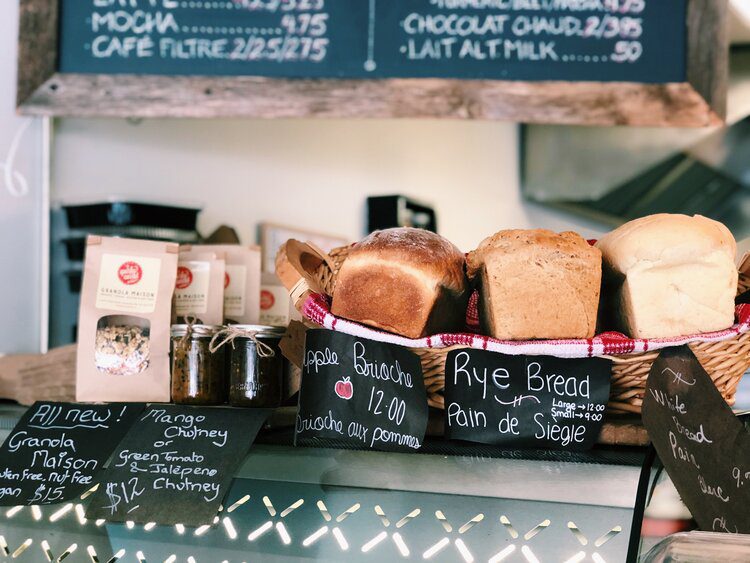 MOCHA 4.75
CAFÉ FILTRE 2/2.25/2.75
CHOCOLAT CHAUD 2/3.95
LAIT ALT MILK .50
GRANOLA MAISON
All new!
Granola
Maison
Free, Nut Free
$15.
Mango
Chutney
or
Green Tomato
& Jalepeño
Chutney
$12
Apple Brioche
12.00
Brioche aux pommes
Rye Bread
Large → 12.00
Small → 9.00
Pain de Siegle
White
Bread
Pain